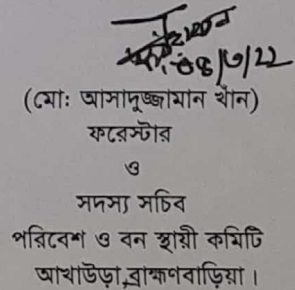 ০৪/৩/২২
(মো: আসাদুজ্জামান খাঁন)
ফরেস্টার
ও
সদস্য সচিব
পরিবেশ ও বন স্থায়ী কমিটি
আখাউড়া,ব্রাহ্মণবাড়িয়া।